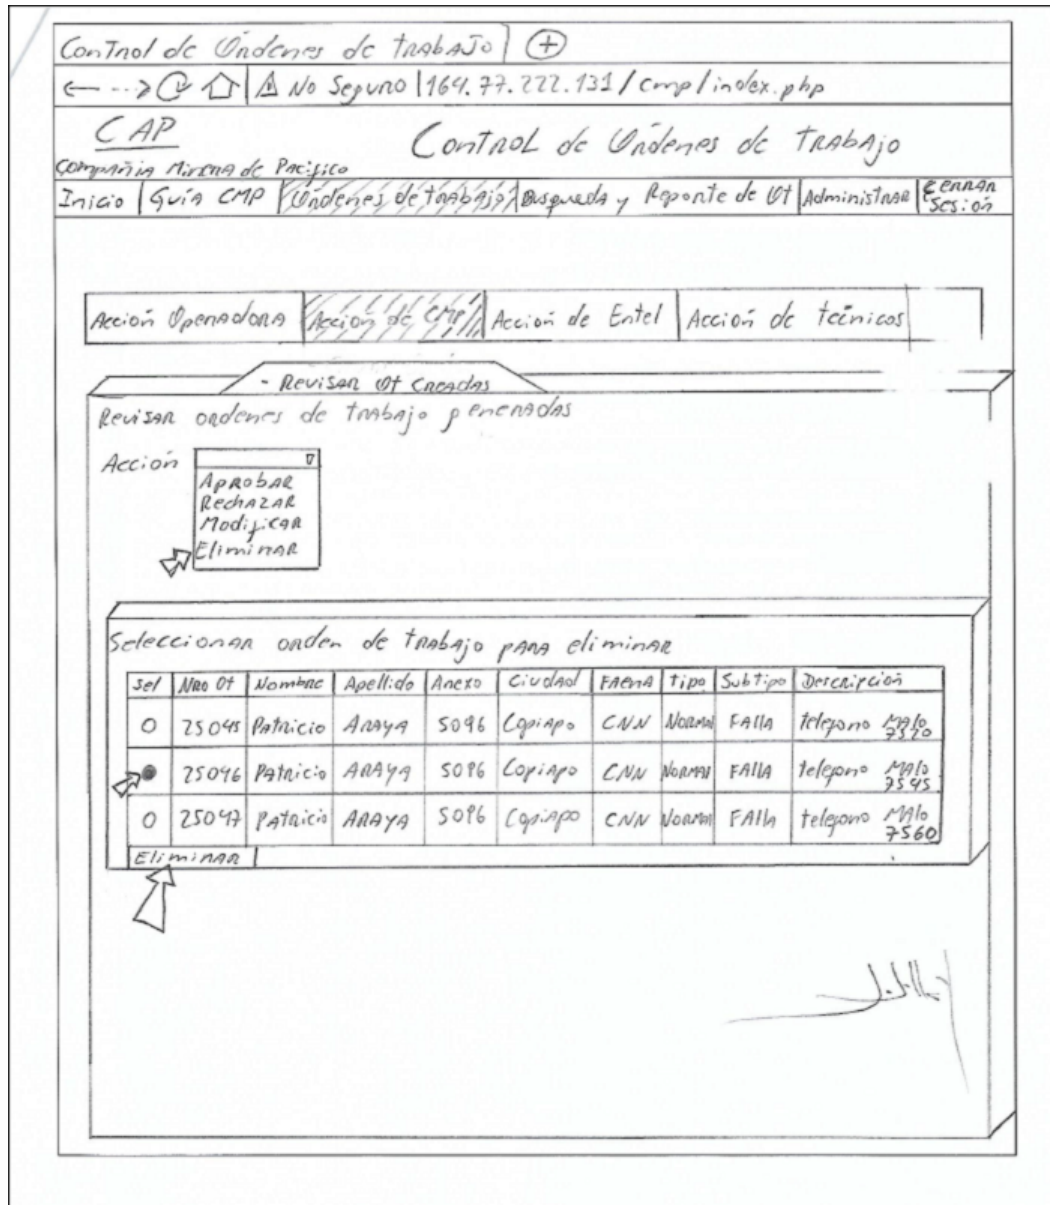 Control de Órdenes de trabajo
No Seguro | 164.77.222.131/cmp/index.php
CAP
Control de Órdenes de trabajo
Compañia Minera de Pacifico
Inicio Guía CMP Órdenes de trabajo Busqueda y Reporte de Ot Administrar Cerrar Sesión
Acción Operadora Acción de CMP Acción de Entel Acción de técnicos
- Revisar Ot Creadas
Revisar ordenes de trabajo generadas
Acción
Aprobar
Rechazar
Modificar
Eliminar
Seleccionar orden de trabajo para eliminar
Sel Nro Ot Nombre Apellido Anexo Ciudad Faena Tipo Subtipo Descripción
25045 Patricio Araya 5096 Copiapo CNN Normal Falla telefono Malo 7520
25046 Patricio Araya 5096 Copiapo CNN Normal Falla telefono Malo 7545
25047 Patricio Araya 5096 Copiapo CNN Normal Falla telefono Malo 7560
Eliminar